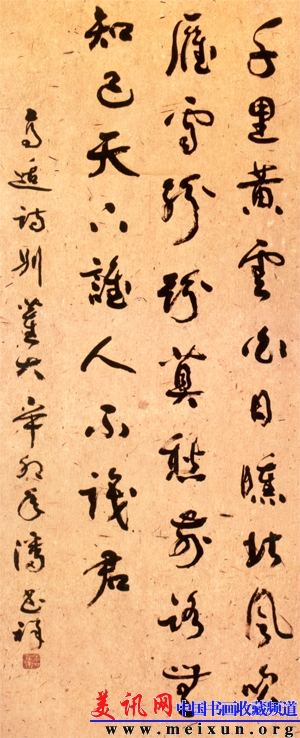 千里黄雲白日曛北風吹
雁雪紛紛莫愁前路無
知己天下誰人不識君
高適詩別董大辛卯年潘祥
美讯网 中国书画收藏频道
www.meixun.org